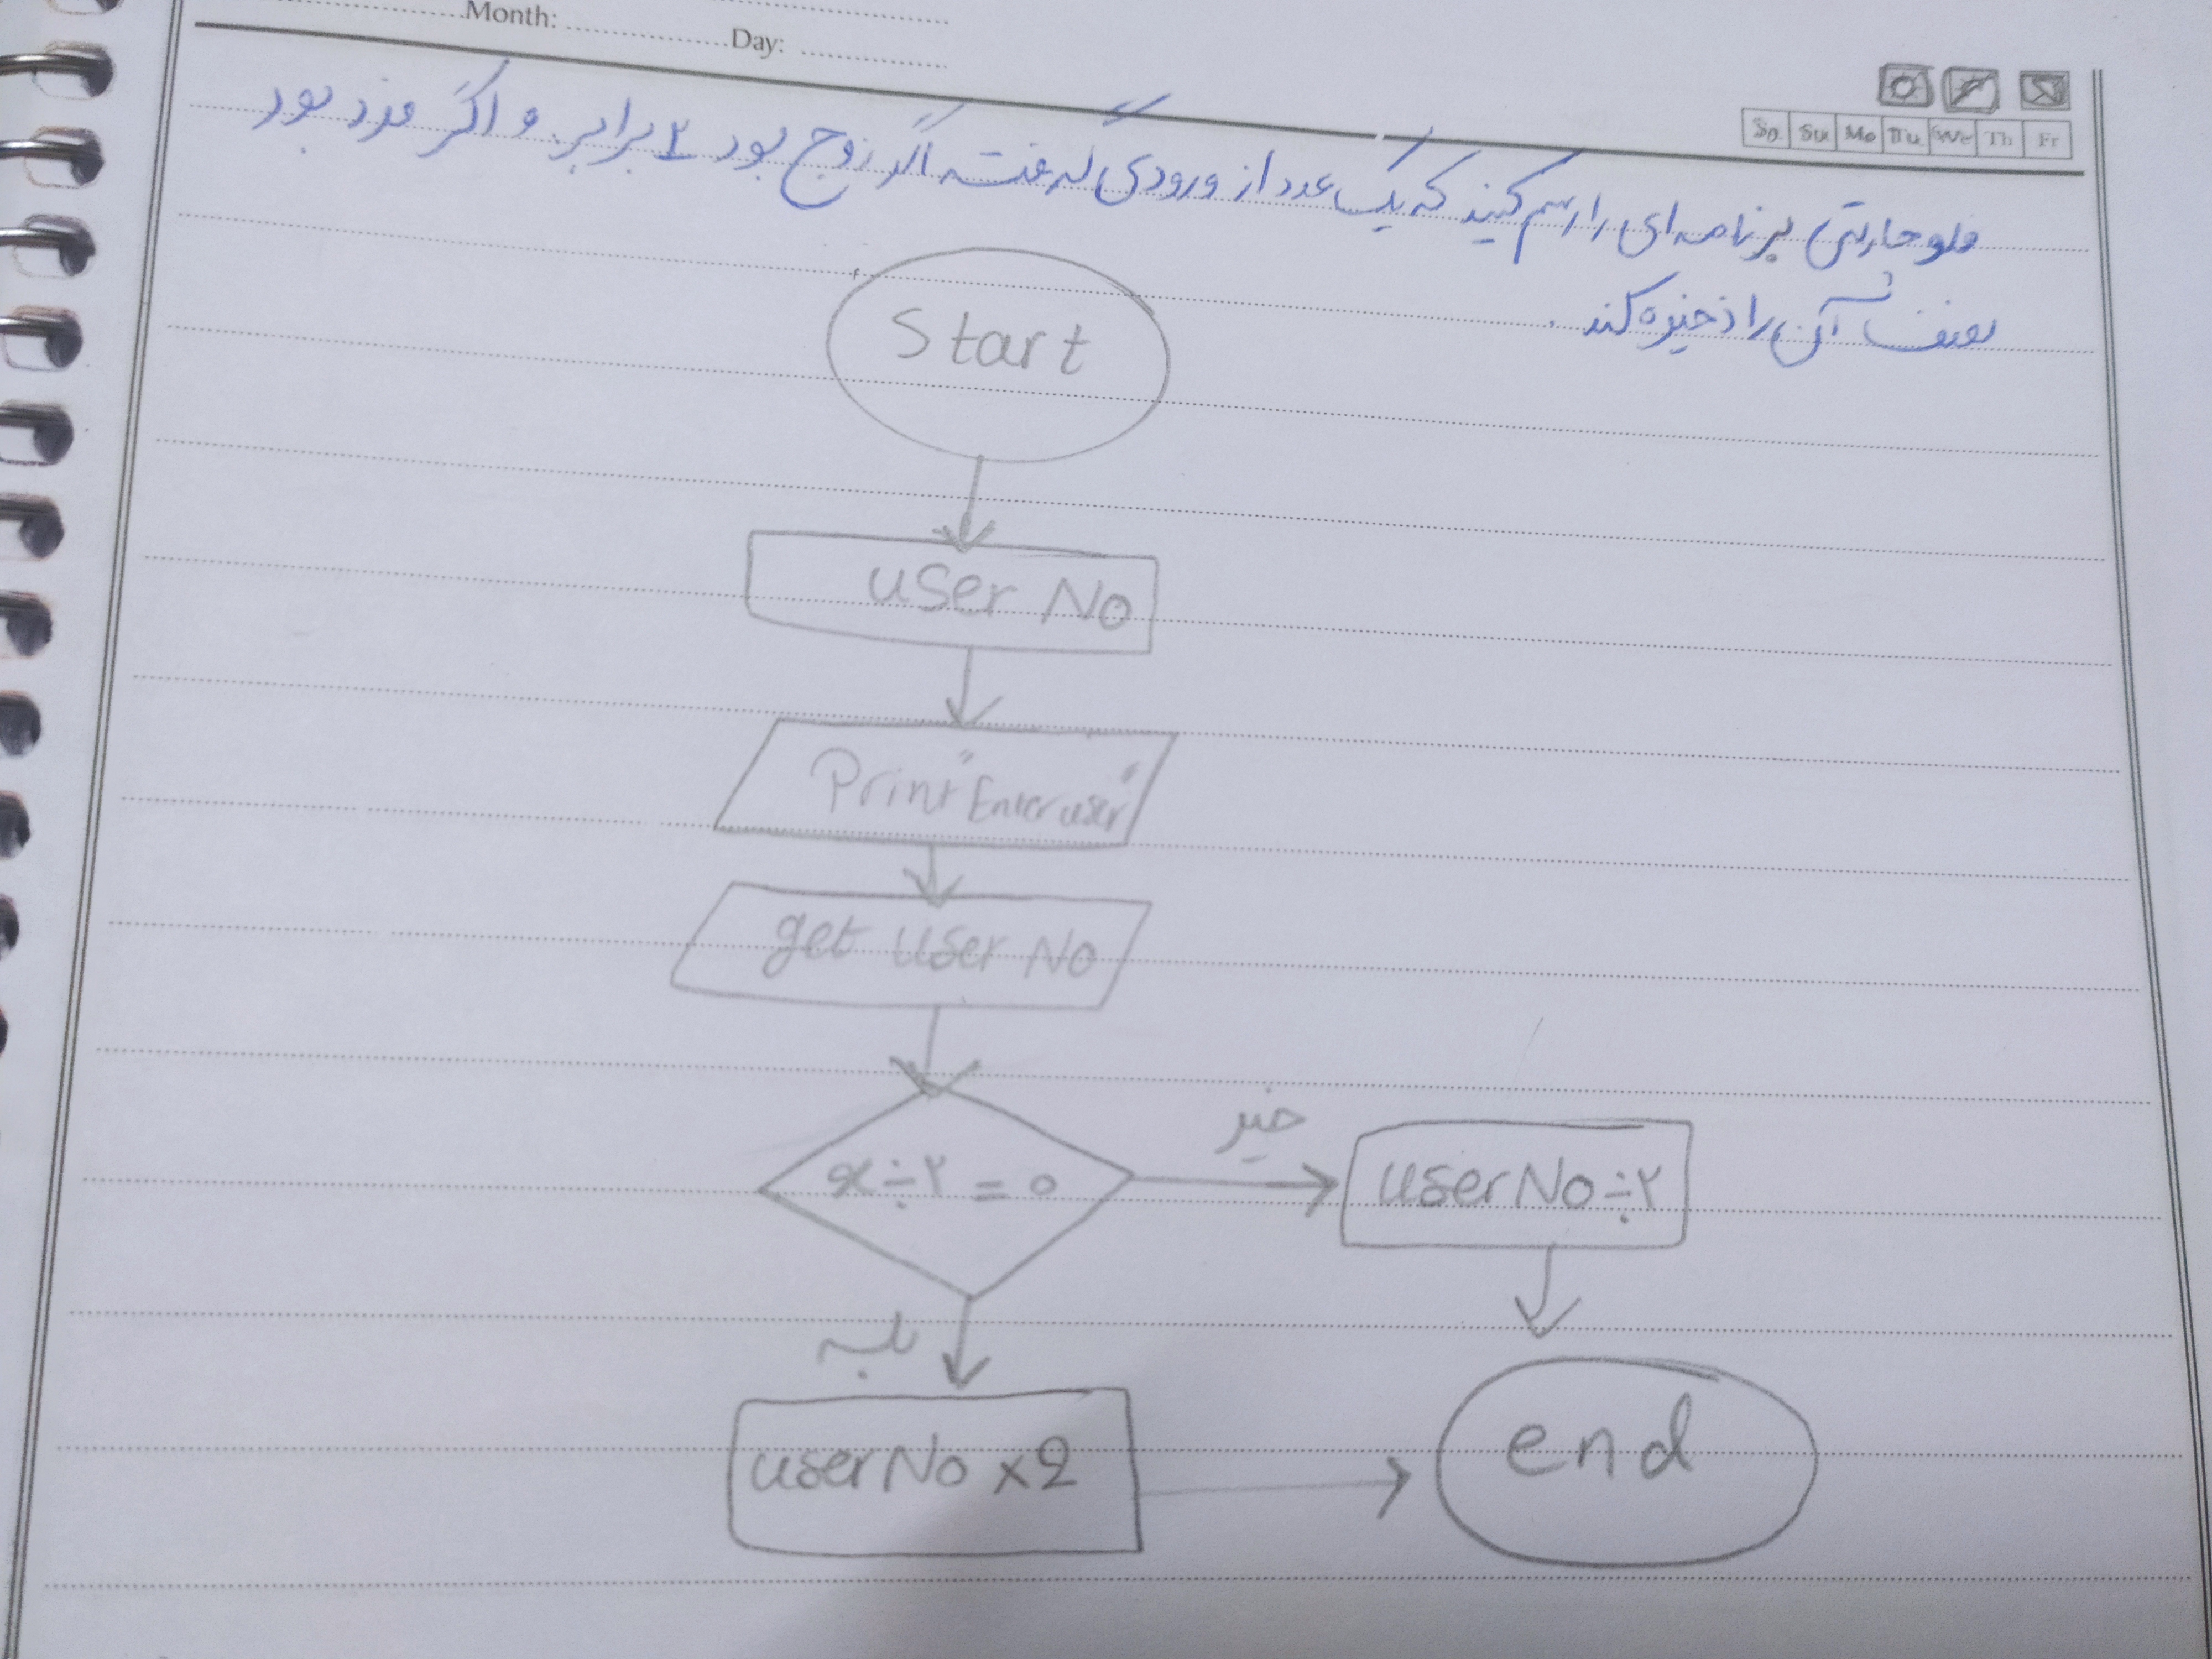 Month: Day:
Sa Su Mo Tu We Th Fr
فلوچارتی برنامه ای را رسم کنید که یک عدد از ورودی گرفته اگر زوج بود ۲ برابر و اگر فرد بود
نصف آن را ذخیره کند.
Start
user No
Print "Enter user"
get user No
x÷۲=0
خیر
userNo÷۲
بله
userNo x2
end